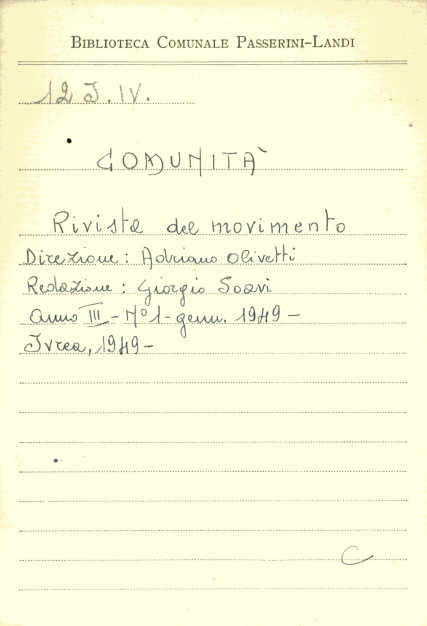 BIBLIOTECA COMUNALE PASSERINI-LANDI
12 J. IV.
COMUNITÀ
Rivista del movimento
Direzione: Adriano Olivetti
Redazione: Giorgio Soavi
Anno III - N° 1 - genn. 1949 -
Ivrea, 1949 -
C